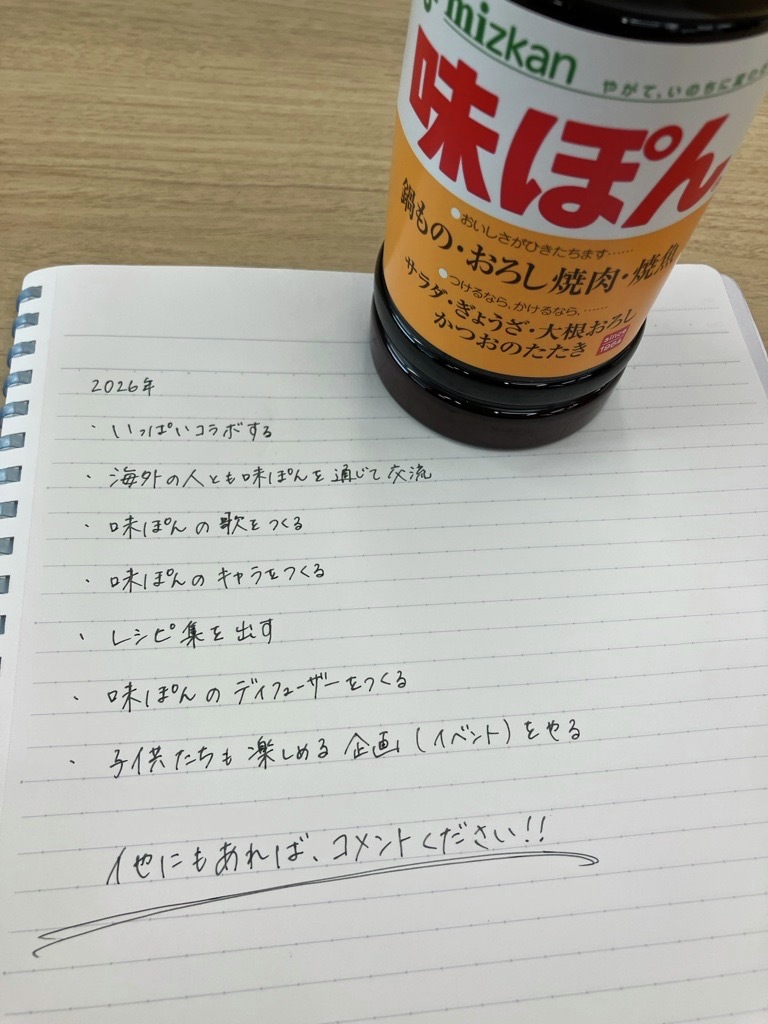 mizkan
やがて、いのちに変わる
味ぽん
おいしさがひきたちます……
鍋もの・おろし焼肉・焼魚
つけるなら、かけるなら、……
サラダ・ぎょうざ・大根おろし
かつおのたたき
since
1964
2026年
・いっぱいコラボする
・海外の人とも味ぽんを通じて交流
・味ぽんの歌をつくる
・味ぽんのキャラをつくる
・レシピ集を出す
・味ぽんのディフューザーをつくる
・子供たちも楽しめる企画(イベント)をやる
他にもあれば、コメントください!!